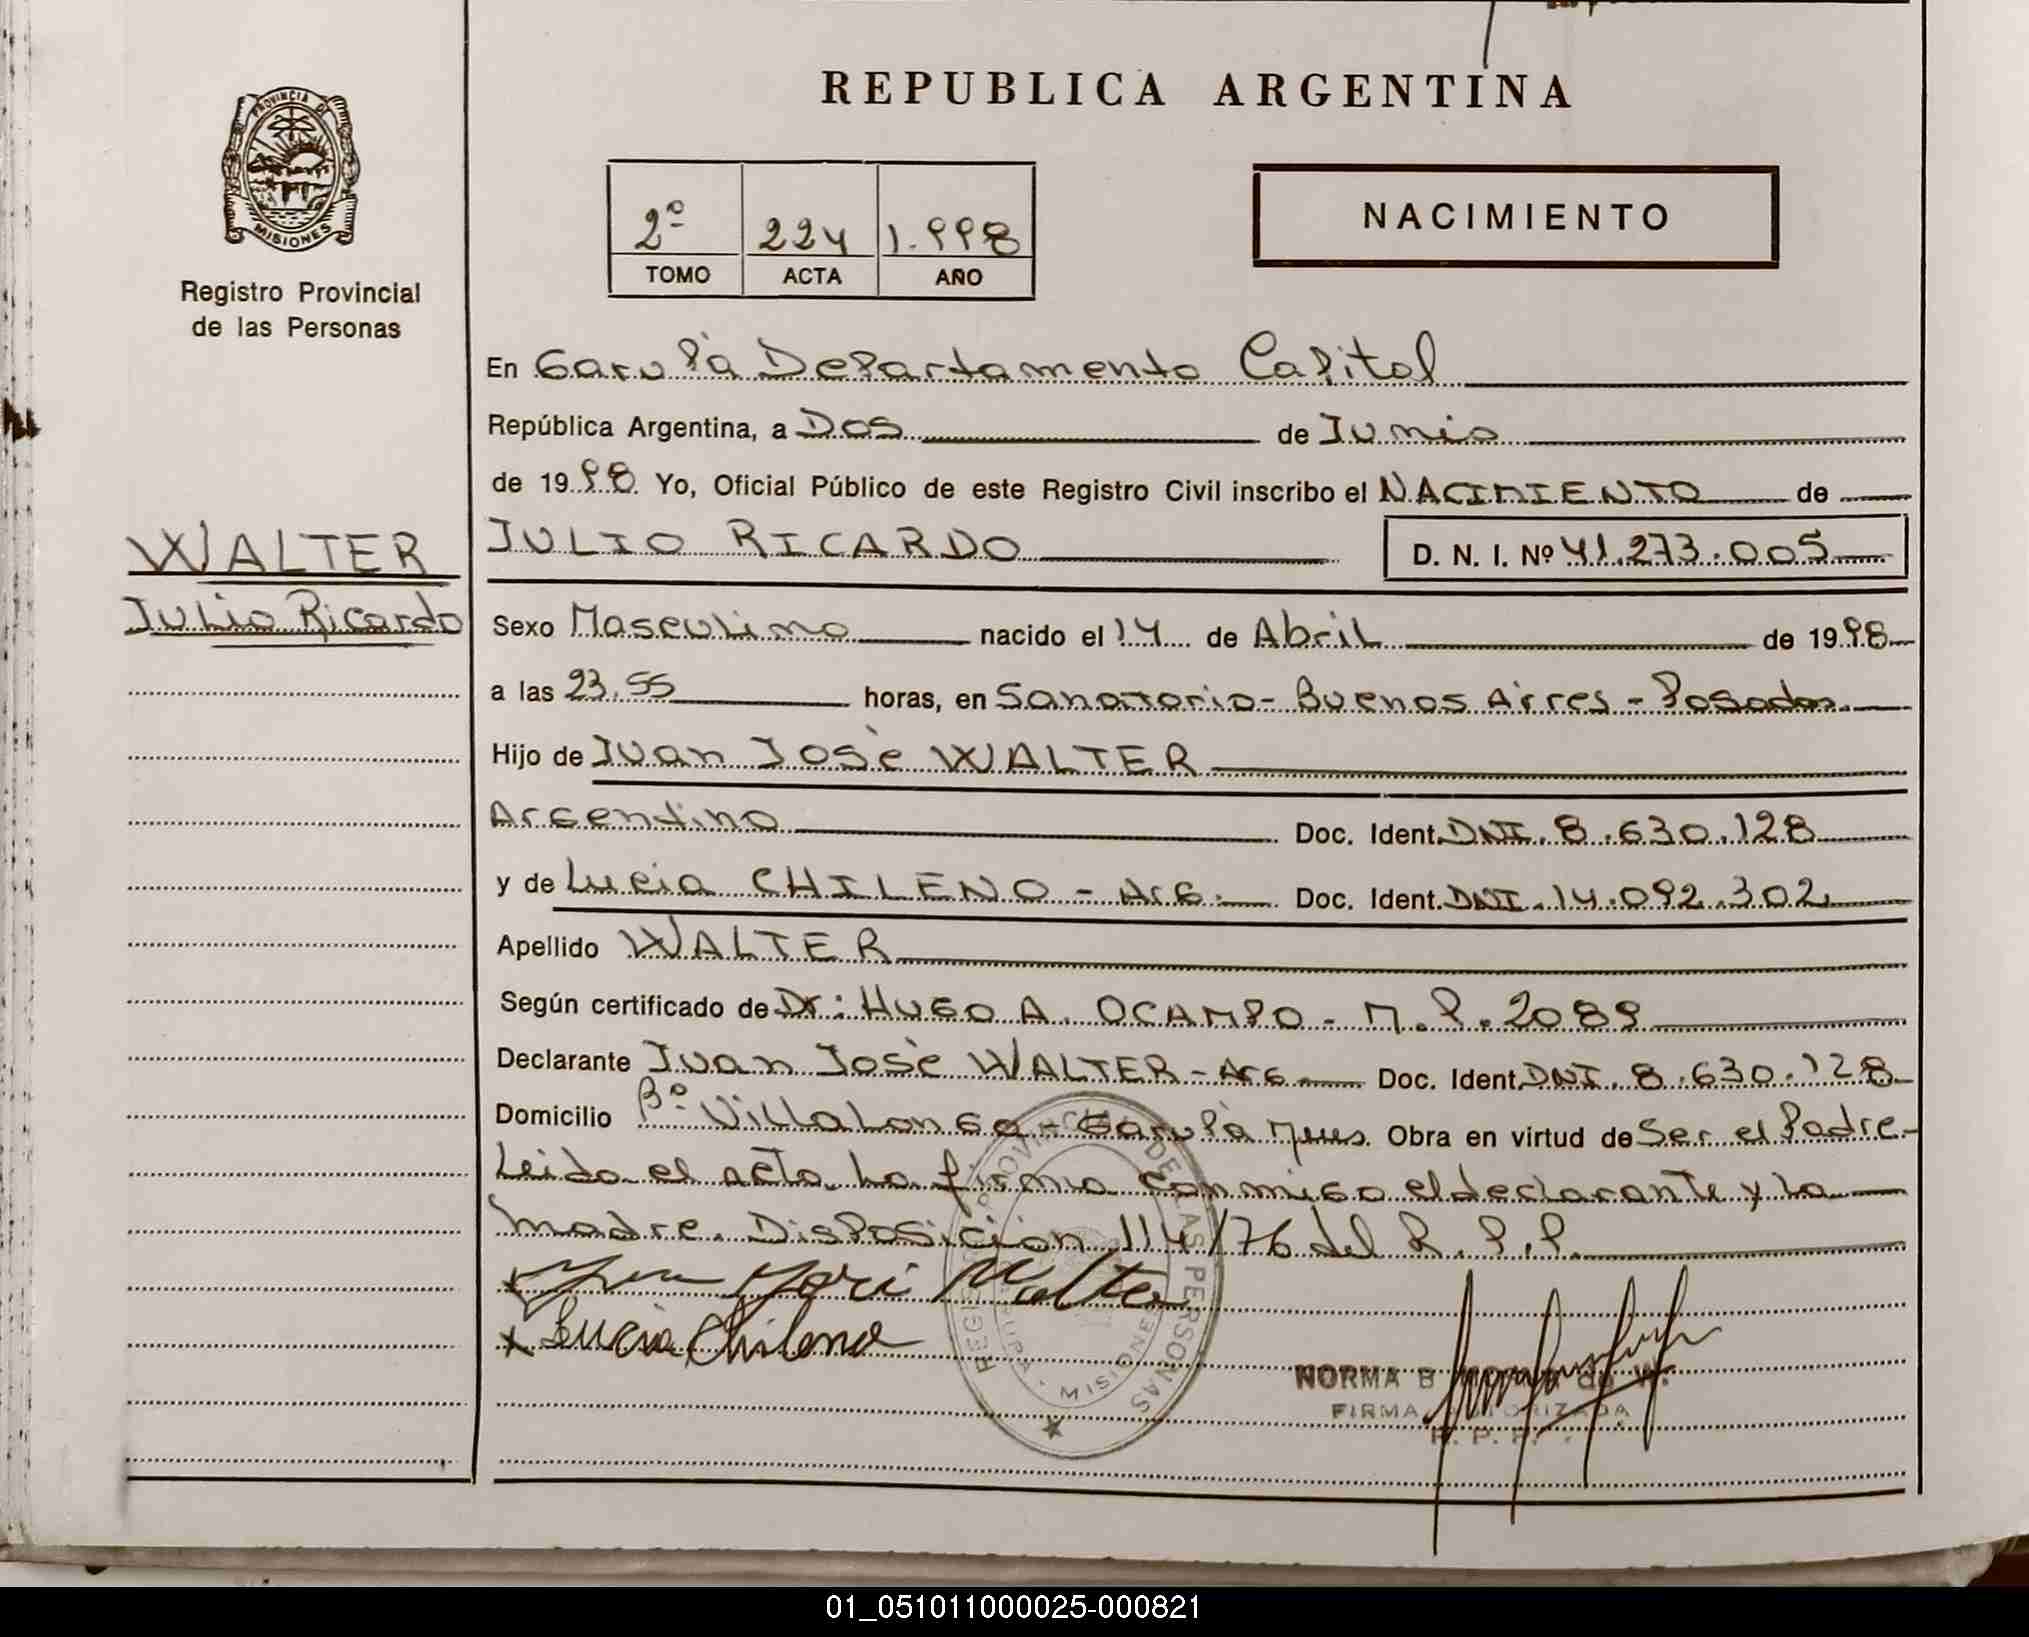 REPUBLICA ARGENTINA
PROVINCIA DE
MISIONES
Registro Provincial
de las Personas
2º 224 1.998
TOMO ACTA AÑO
NACIMIENTO
En Garupà Departamento Capital
República Argentina, a Dos de Junio
de 1998 Yo, Oficial Público de este Registro Civil inscribo el NACIMIENTO de
WALTER
Julio Ricardo
JULIO RICARDO D. N. I. Nº 41.273.005
Sexo Masculino nacido el 14 de Abril de 1998
a las 23.55 horas, en Sanatorio - Buenos Aires - Posadas.
Hijo de Juan Josè WALTER
Argentino Doc. Ident. DNI. 8.630.128
y de Lucia CHILENO - Arg. Doc. Ident. DNI. 14.092.302
Apellido WALTER
Según certificado de Dr: HUGO A. OCAMPO - M.P. 2089
Declarante Juan Josè WALTER - Arg Doc. Ident. DNI. 8.630.128
Domicilio Bº Villalonga - Garupà Mnes. Obra en virtud de Ser el Padre -
Leida el acta La firma conmigo el declarante y La
madre. Disposición 114/76 del R.P.P.
x Juan José Walter
x Lucia Chileno
REGISTRO PROVINCIAL DE LAS PERSONAS
GARUPA - MISIONES
NORMA B de W.
FIRMA AUTORIZADA
R. P. P.
01_051011000025-000821